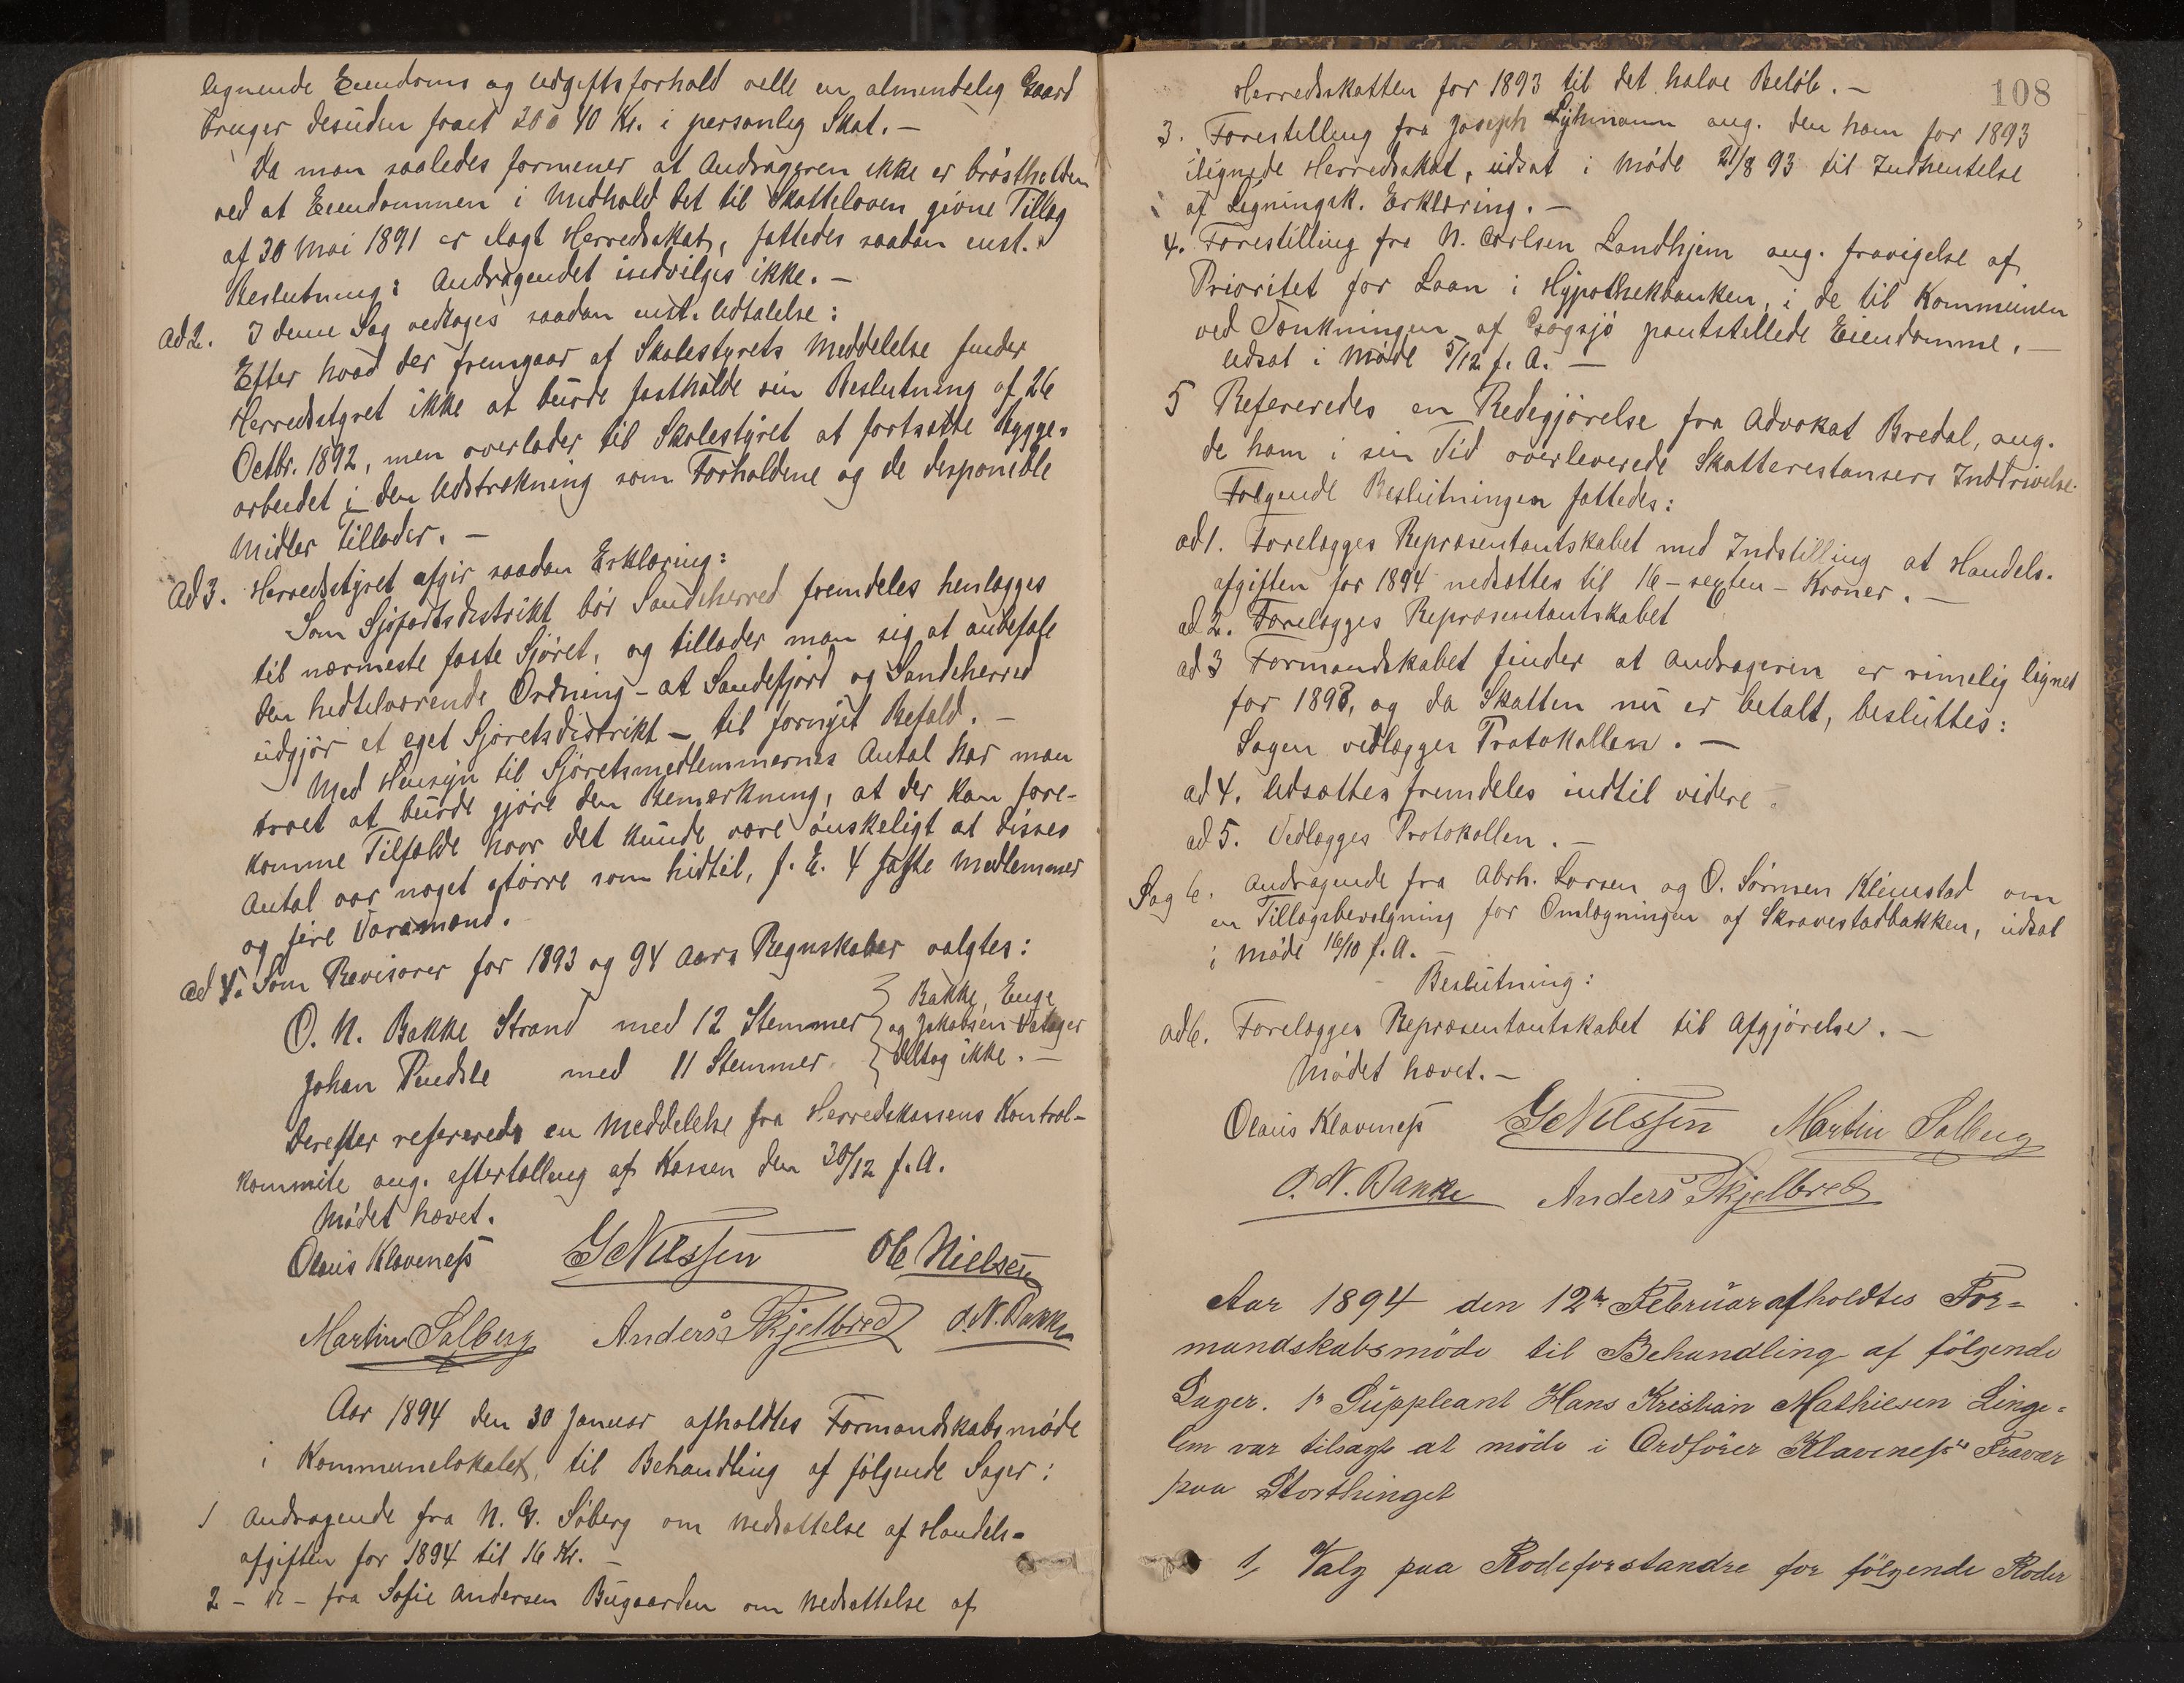 lignende Eiendoms og Udgiftsforhold ville en almindelig Gaard
bruger desuden faaet 30 a 40 Kr. i personlig Skat. –
Da man saaledes formener at Andrageren ikke er bröstholden
ved at Eiendommen i Medhold det til Skatteloven givne Tillæg
af 30 Mai 1891 er ilagt Herredsskat, fattedes saadan enst.
Beslutning: Andragendet indvilges ikke. –
Ad 2. I denne Sag vedtoges saadan enst. Udtalelse:
Efter hvad der fremgaar af Skolestyrets Meddelelse finder
Herredsstyret ikke at burde fastholde sin Beslutning af 26
Octbr. 1892, men overlader til Skolestyret at fortsætte Bygge-
arbeidet i den Udstrækning som Forholdene og de disponible
Midler tillader. –
Ad 3. Herredsstyret afgir saadan Erklæring:
Som Sjöfartsdistrikt bör Sandeherred fremdeles henlægges
til nærmeste faste Sjöret, og tillader man sig at anbefale
den hidtilværende Ordning – at Sandefjord og Sandeherred
udgjör et eget Sjöretsdistrikt – til fornyet Befald. –
Med Hensyn til Sjöretsmedlemmernes Antal har man
troet at burde gjöre den Bemærkning, at der kan fore-
komme Tilfælde hvor det kunde være önskeligt at disses
Antal var noget större som hidtil, f. E. 4 faste Medlemmer
og fire Varamænd.
ad 4. Som Revisorer for 1893 og 94 Aars Regnskaber valgtes:
O. N. Bakke Strand med 12 Stemmer } Bakke, Enge
og Jakobsen
Johan Pindsle med 11 Stemmer. } deltog ikke. –
Derefter refereredes en Meddelelse fra Herredskassens Kontrol-
kommite ang. eftertælling af Kassen den 30/12 f. A.
Mödet hævet.
Olaus Klaveness G Nilssen Ole Nielsen
Martin Salberg Anders Skjelbred O. N. Bakke
Aar 1894 den 30 Januar afholdtes Formandskabsmöde
i Kommunelokalet, til Behandling af fölgende Sager:
1 Andragende fra N. G. Söberg om Nedsættelse af Handels-
afgiften for 1894 til 16 Kr. –
2 – Do – fra Sofie Andersen Bugaarden om Nedsættelse af
108
Herredsskatten for 1893 til det halve Belöb. –
3. Forestilling fra Joseph Lyhmann ang. den ham for 1893
ilignede Herredsskat, udsat i Möde 21/8 93 til Indhentelse
af Ligningsk. Erklæring. –
4. Forestilling fra N. Carlsen Landhjem ang. fravigelse af
Prioritet for Laan i Hypothekbanken, i de til Kommunen
ved Sænkningen af Gogsjö pantstillede Eiendomme. –
Udsat i Möde 5/12 f. A. –
5 Refereredes en Redegjörelse fra Advokat Bredal, ang.
de ham i sin Tid overleverede Skatterestansers Inddrivelse.
Fölgende Beslutninger fattedes:
ad 1. Forelægges Repræsentantskabet med Indstilling at Handels-
afgiften for 1894 nedsættes til 16 – sexten – Kroner. –
ad 2. Forelægges Repræsentantskabet
ad 3 Formandskabet finder at Andrageren er rimelig lignet
for 1893, og da Skatten nu er betalt, besluttes:
Sagen vedlægges Protokollen. –
ad 4. Udsættes fremdeles indtil videre.
ad 5. Vedlægges Protokollen. –
Sag 6. Andragende fra Abrh. Larsen og O. Sörensen Klinestad om
en Tillægsbevilgning for Omlægningen af Skravestadbakken, udsat
i Möde 16/10 f. A. –
Beslutning:
ad 6. Forelægges Repræsentantskabet til Afgjörelse. –
Mödet hævet. –
Olaus Klaveness G Nilssen Martin Salberg
O. N. Bakke Anders Skjelbred
Aar 1894 den 12te Februar afholdtes For-
mandskabsmöde til Behandling af fölgende
Sager. 1ste Suppleant Hans Kristian Mathiesen Linge-
lem var tilsagt at möde i Ordförer Klaveness's Fravær
paa Storthinget
1, Valg paa Rodeforstandre for fölgende Roder